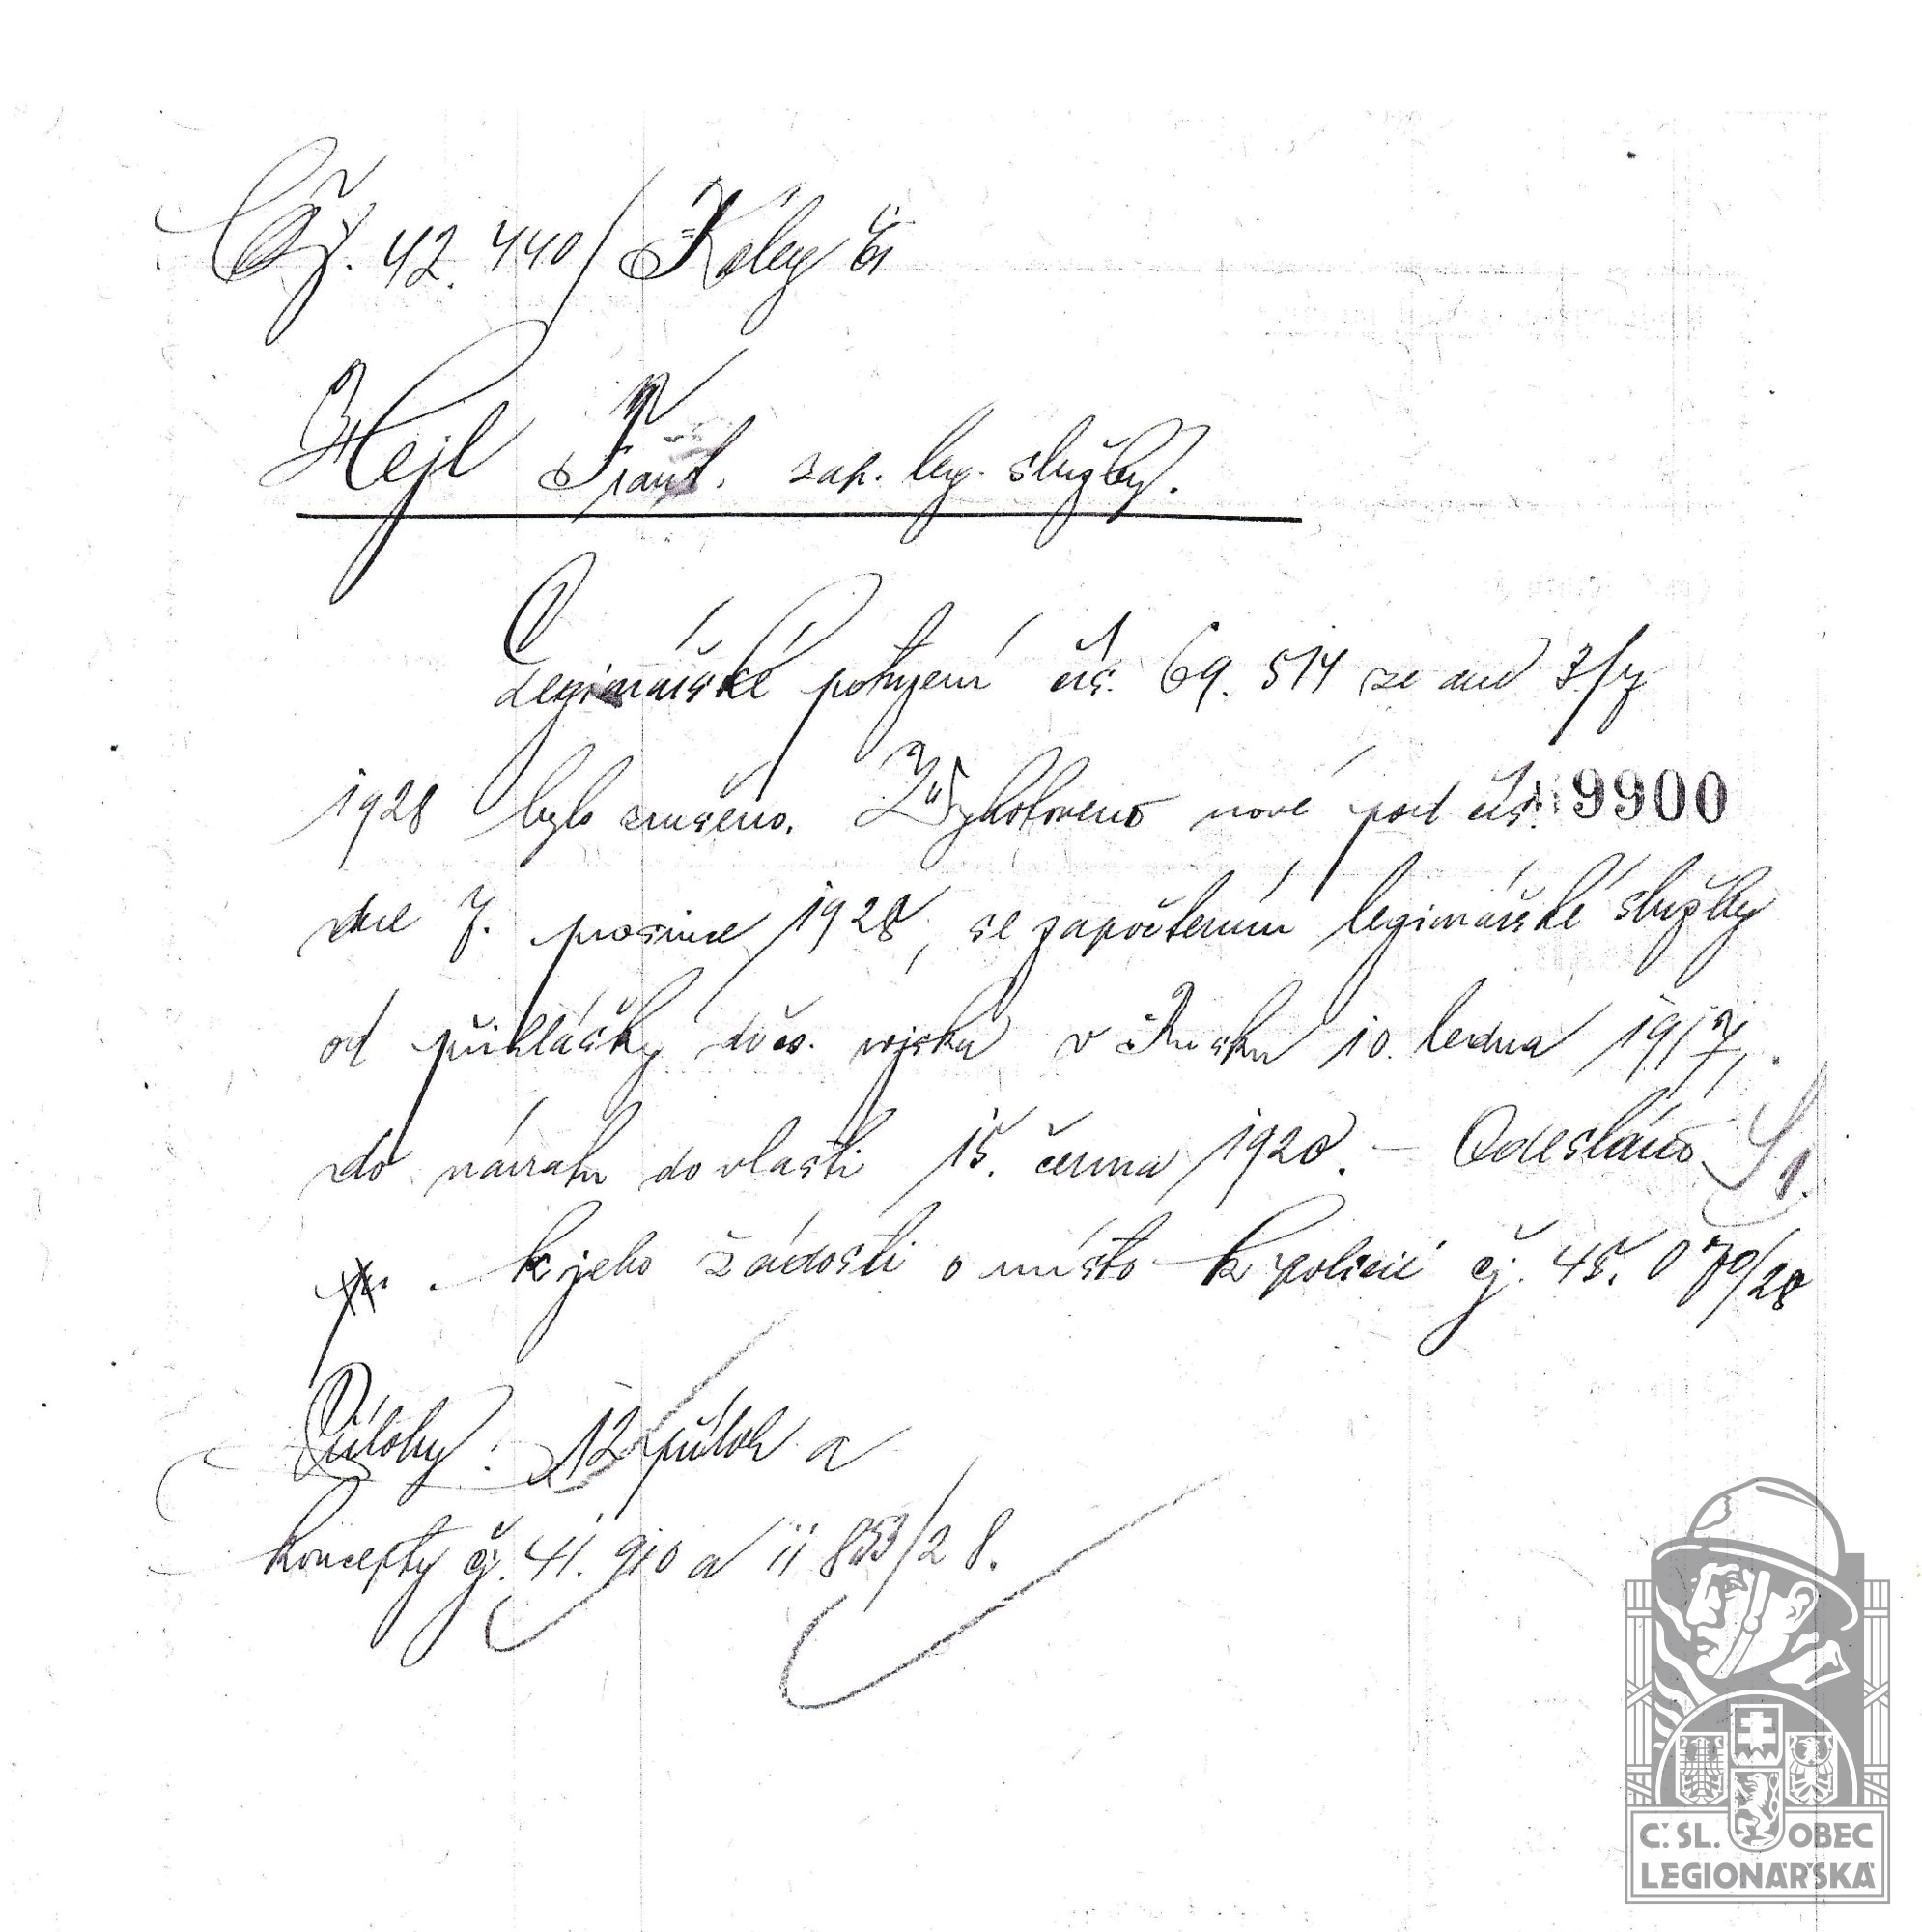 Čj. 42.440/Kóley
Hejl Frant. zap. leg. služby.
Legionářské potvrzení čís. 69.514 ze dne 7/7
1928 bylo zrušeno. Vyhotoveno nové pod čís. 9900
dne 7. prosince 1928, se započtením legionářské služby
od přihlášky do čs. vojska v Rusku 10. ledna 1917,
do návratu do vlasti 15. června 1920. – Odesláno
k jeho žádosti o místo k policii čj. 45.070/28
Přílohy: 12 příloh a
koncepty čj. 41.910 a 11853/28.
Č. SL. OBEC
LEGIONÁŘSKÁ